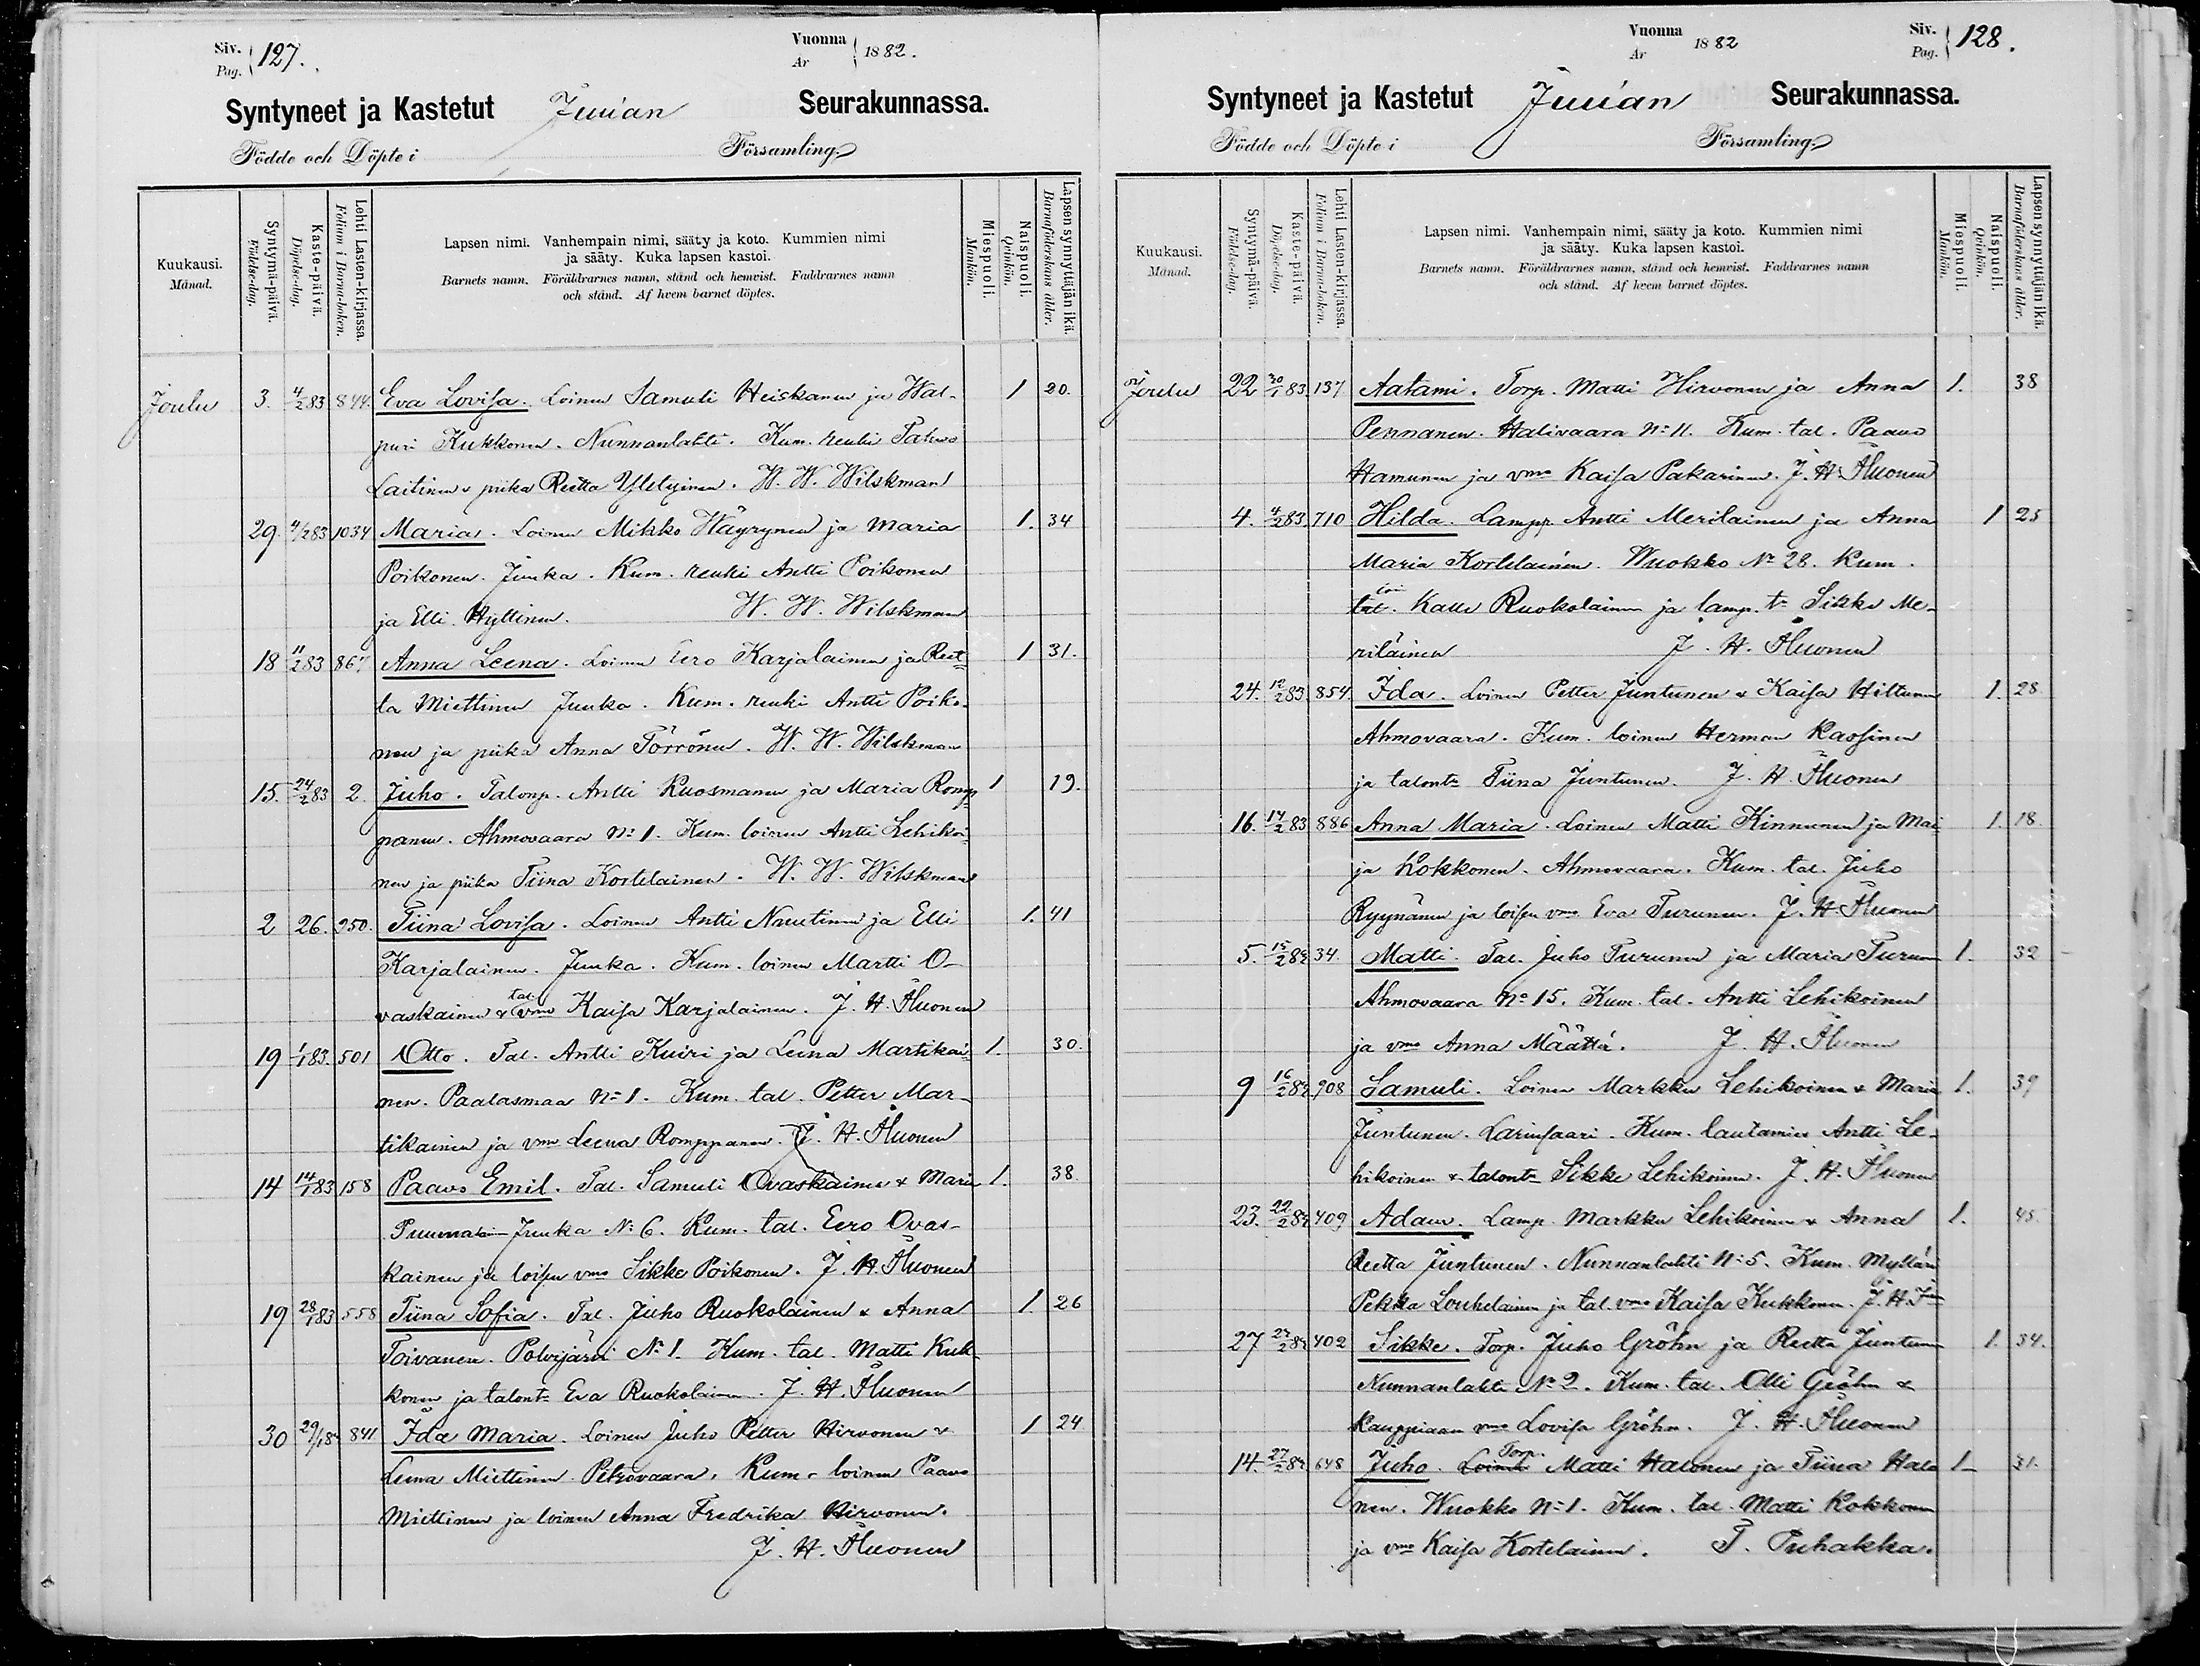 Siv. Pag. 127.
Vuonna År 1882.
Syntyneet ja Kastetut Juuan Seurakunnassa.
Födde och Döpte i Församling.
Kuukausi. Månad.
Syntymä-päivä. Födelse-dag.
Kaste-päivä. Döpelse-dag.
Lehti Lasten-kirjassa. Folium i Barna-boken.
Lapsen nimi. Vanhempain nimi, sääty ja koto. Kummien nimi
ja sääty. Kuka lapsen kastoi.
Barnets namn. Föräldrarnes namn, stånd och hemvist. Faddrarnes namn
och stånd. Af hvem barnet döptes.
Miespuoli. Mankön.
Naispuoli. Qvinkön.
Lapsen synnyttäjän ikä. Barnaföderskans ålder.
Joulu 3. 4/2 83 844. Eva Lovisa. Loinen Samuli Heiskanen ja Wal- 1 20.
puri Kukkonen. Nunnanlahti. Kum. renki Tahvo
Laitinen & piika Reetta Yletyinen. W. W. Wilskman
29. 4/2 83 1034 Maria. Loinen Mikko Häyrynen ja Maria 1. 34
Poikonen. Juuka. Kum. renki Antti Poikonen
ja Elli Hyttinen. W. W. Wilskman
18 11/2 83 867 Anna Leena. Loinen Eero Karjalainen ja Reet- 1 31.
ta Miettinen Juuka. Kum. renki Antti Poiko-
nen ja piika Anna Törrönen. W. W. Wilskman
15. 24/2 83 2. Juho. Talonp. Antti Kuosmanen ja Maria Romp- 1 19.
panen. Ahmovaara No 1. Kum. loinen Antti Lehikoi-
nen ja piika Tiina Kortelainen. W. W. Wilskman
2 26. 950. Tiina Lovisa. Loinen Antti Nuutinen ja Elli 1. 41
Karjalainen. Juuka. Kum. loinen Martti O-
vaskainen & tal. vmo Kaisa Karjalainen. J. H. Äluonen
19 1/1 83. 501 Otto. Tal. Antti Kuiri ja Leena Martikai- 1. 30.
nen. Paalasmaa No 1. Kum. tal. Petter Mar-
tikainen ja vmo Leena Romppanen. J. H. Äluonen
14 14/1 83 158 Paavo Emil. Tal. Samuli Ovaskainen & Maria 1. 38
Juuka No 6. Kum. tal. Eero Ovas-
kainen ja loisen vmo Sikke Poikonen. J. H. Äluonen
19 28/1 83 558 Tiina Sofia. Tal. Juho Ruokolainen & Anna 1 26
Toivanen. Polvijärvi No 1. Kum. tal. Matti Kuk-
konen ja talont. Eva Ruokolainen. J. H. Äluonen
30 29/1 83 841 Ida Maria. Loinen Juho Petter Hirvonen & 1 24
Leena Miettinen Petrovaara. Kum. loinen Paavo
Miettinen ja loinen Anna Fredrika Hirvonen.
J. H. Äluonen
Vuonna År 1882
Siv. Pag. 128.
Syntyneet ja Kastetut Juuan Seurakunnassa.
Födde och Döpte i Församling.
Kuukausi. Månad.
Syntymä-päivä. Födelse-dag.
Kaste-päivä. Döpelse-dag.
Lehti Lasten-kirjassa. Folium i Barna-boken.
Lapsen nimi. Vanhempain nimi, sääty ja koto. Kummien nimi
ja sääty. Kuka lapsen kastoi.
Barnets namn. Föräldrarnes namn, stånd och hemvist. Faddrarnes namn
och stånd. Af hvem barnet döptes.
Miespuoli. Mankön.
Naispuoli. Qvinkön.
Lapsen synnyttäjän ikä. Barnaföderskans ålder.
Joulu 22 30/1 83. 137 Aatami. Torp. Matti Hirvonen ja Anna 1. 38
Pennanen. Halivaara No 11. Kum. tal. Paavo
Hamunen ja vmo Kaisa Pakarinen. J. H. Äluonen
4. 4/2 83 710 Hilda. Lampp. Antti Meriläinen ja Anna 1 25
Maria Kortelainen. Wuokko No 28. Kum.
Kalle Ruokolainen ja lamp. tr Sikke Me-
riläinen J. H. Äluonen
24. 12/2 83. 854. Ida. Loinen Petter Juntunen & Kaisa Hiltunen 1. 28
Ahmovaara. Kum. loinen Herman Kassinen
ja talont. Tiina Juntunen. J. H. Äluonen
16. 14/2 83 886 Anna Maria. Loinen Matti Kinnunen ja Mai- 1. 18.
ja Kokkonen. Ahmovaara. Kum. tal. Juho
Ryynänen ja loisen vmo Eva Turunen. J. H. Äluonen
5. 15/2 83 34. Matti. Tal. Juho Turunen ja Maria Turunen 1. 32
Ahmovaara No 15. Kum. tal. Antti Lehikoinen
ja vmo Anna Määttä. J. H. Äluonen
9 16/2 83 908 Samuli. Loinen Markku Lehikoinen & Maria 1. 39
Juntunen. Larinsaari. Kum. lautamies Antti Le-
hikoinen & talont. Sikke Lehikoinen. J. H. Äluonen
23. 22/2 83 409 Adam. Lamp. Markku Lehikoinen & Anna 1. 45.
Reetta Juntunen. Nunnanlahti No 5. Kum. Mylläri
Pekka Louhelainen ja tal. vmo Kaisa Kukkonen.
27 402 Sikke. Torp. Juho Gröhn ja Reetta Juntunen 1. 34.
Nunnanlahti No 2. Kum. tal. Olli Gröhn &
kauppiaan vmo Lovisa Gröhn. J. H. Äluonen
14. 27/2 83 648 Juho. Loinen Torp. Matti Halonen ja Tiina Halo- 1 31.
nen. Wuokko No 1. Kum. tal. Matti Kokkonen
ja vmo Kaisa Kortelainen. T. Puhakka.